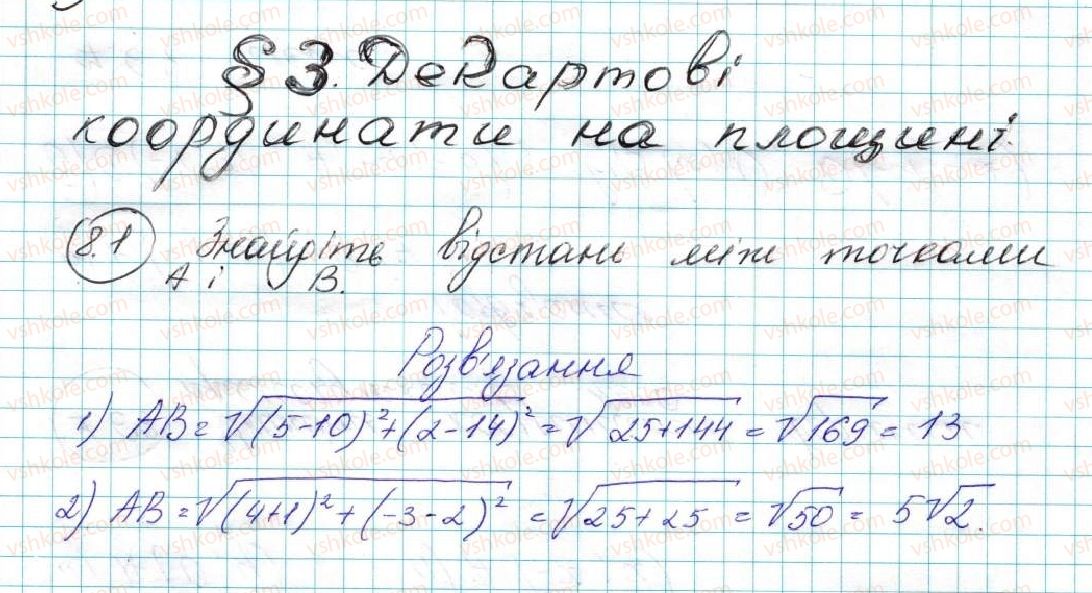 § 3. Декартові
координати на площині.
8.1 Знайдіть відстань між точками
А і В.
Розв'язання
1) AB = √((5-10)²+(2-14)²) = √(25+144) = √169 = 13
2) AB = √((4+1)²+(-3-2)²) = √(25+25) = √50 = 5√2.